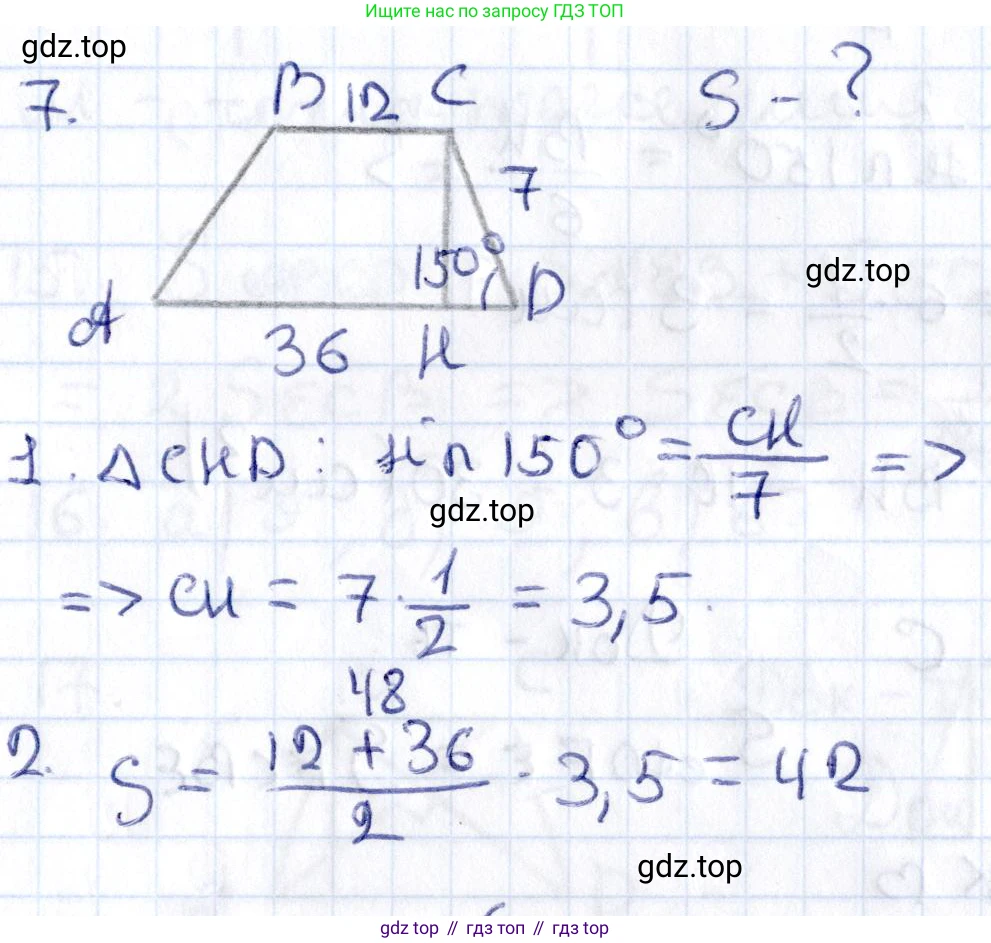 Ищите нас по запросу ГДЗ ТОП
gdz.top
7. B 12 C S - ?
7
150° D
gdz.top
A 36 H
1. △CHD: sin 150° = CH/7 =>
gdz.top
=> CH = 7 · 1/2 = 3,5.
48
2. S = (12 + 36)/2 · 3,5 = 42
gdz.top
gdz.top // гдз топ // gdz top